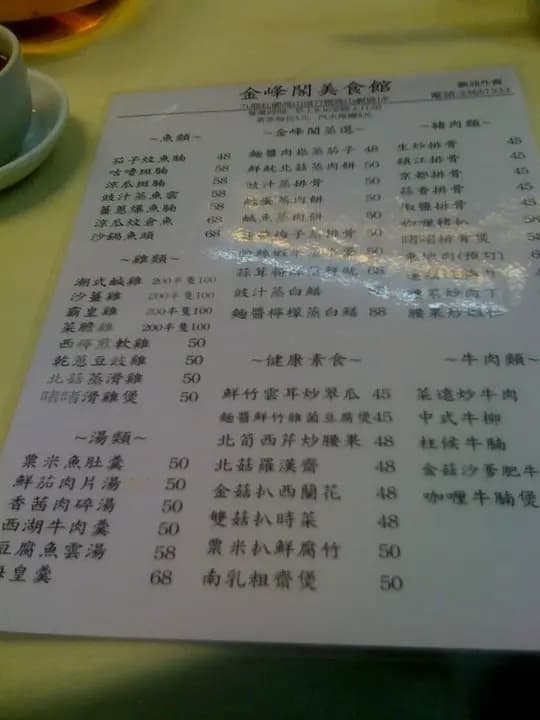 金峰閣美食館
歡迎外賣
~魚類~
茄子炆魚腩 48
咕嚕斑腩 58
涼瓜斑腩 58
豉汁蒸魚雲 58
薑蔥爆魚腩 58
涼瓜炆倉魚 68
沙鍋魚頭 68
~雞類~
潮式鹹雞 200半隻100
沙薑雞 200半隻100
霸皇雞 200半隻100
菜膽雞 200半隻100
西檸煎軟雞 50
乾蔥豆豉雞 50
北菇蒸滑雞 50
啫啫滑雞煲 50
~湯類~
粟米魚肚羹 50
鮮茄肉片湯 50
香茜肉碎湯 50
西湖牛肉羹 50
豆腐魚雲湯 58
皇羹 68
~金峰閣蒸選~
麵醬肉崧蒸茄子 48
鮮魷北菇蒸肉餅 50
豉汁蒸排骨 50
鹹蛋蒸肉餅 50
鹹魚蒸肉餅
豉汁蒸白鱔
麵醬檸檬蒸白鱔 88
~健康素食~
鮮竹雲耳炒翠瓜 45
麵醬鮮竹雜菌豆腐煲45
北笳西芹炒腰果 48
北菇羅漢齋 48
金菇扒西蘭花 48
雙菇扒時菜 48
粟米扒鮮腐竹 50
南乳粗齋煲 50
~豬肉類~
生炒排骨 45
鎮江排骨 45
京都排骨 45
蒜香排骨 45
椒鹽排骨
咖喱豬扒
啫啫排骨煲
腰果炒肉丁
~牛肉類~
菜遠炒牛肉
中式牛柳
柱候牛腩
金菇沙爹肥牛
咖喱牛腩煲